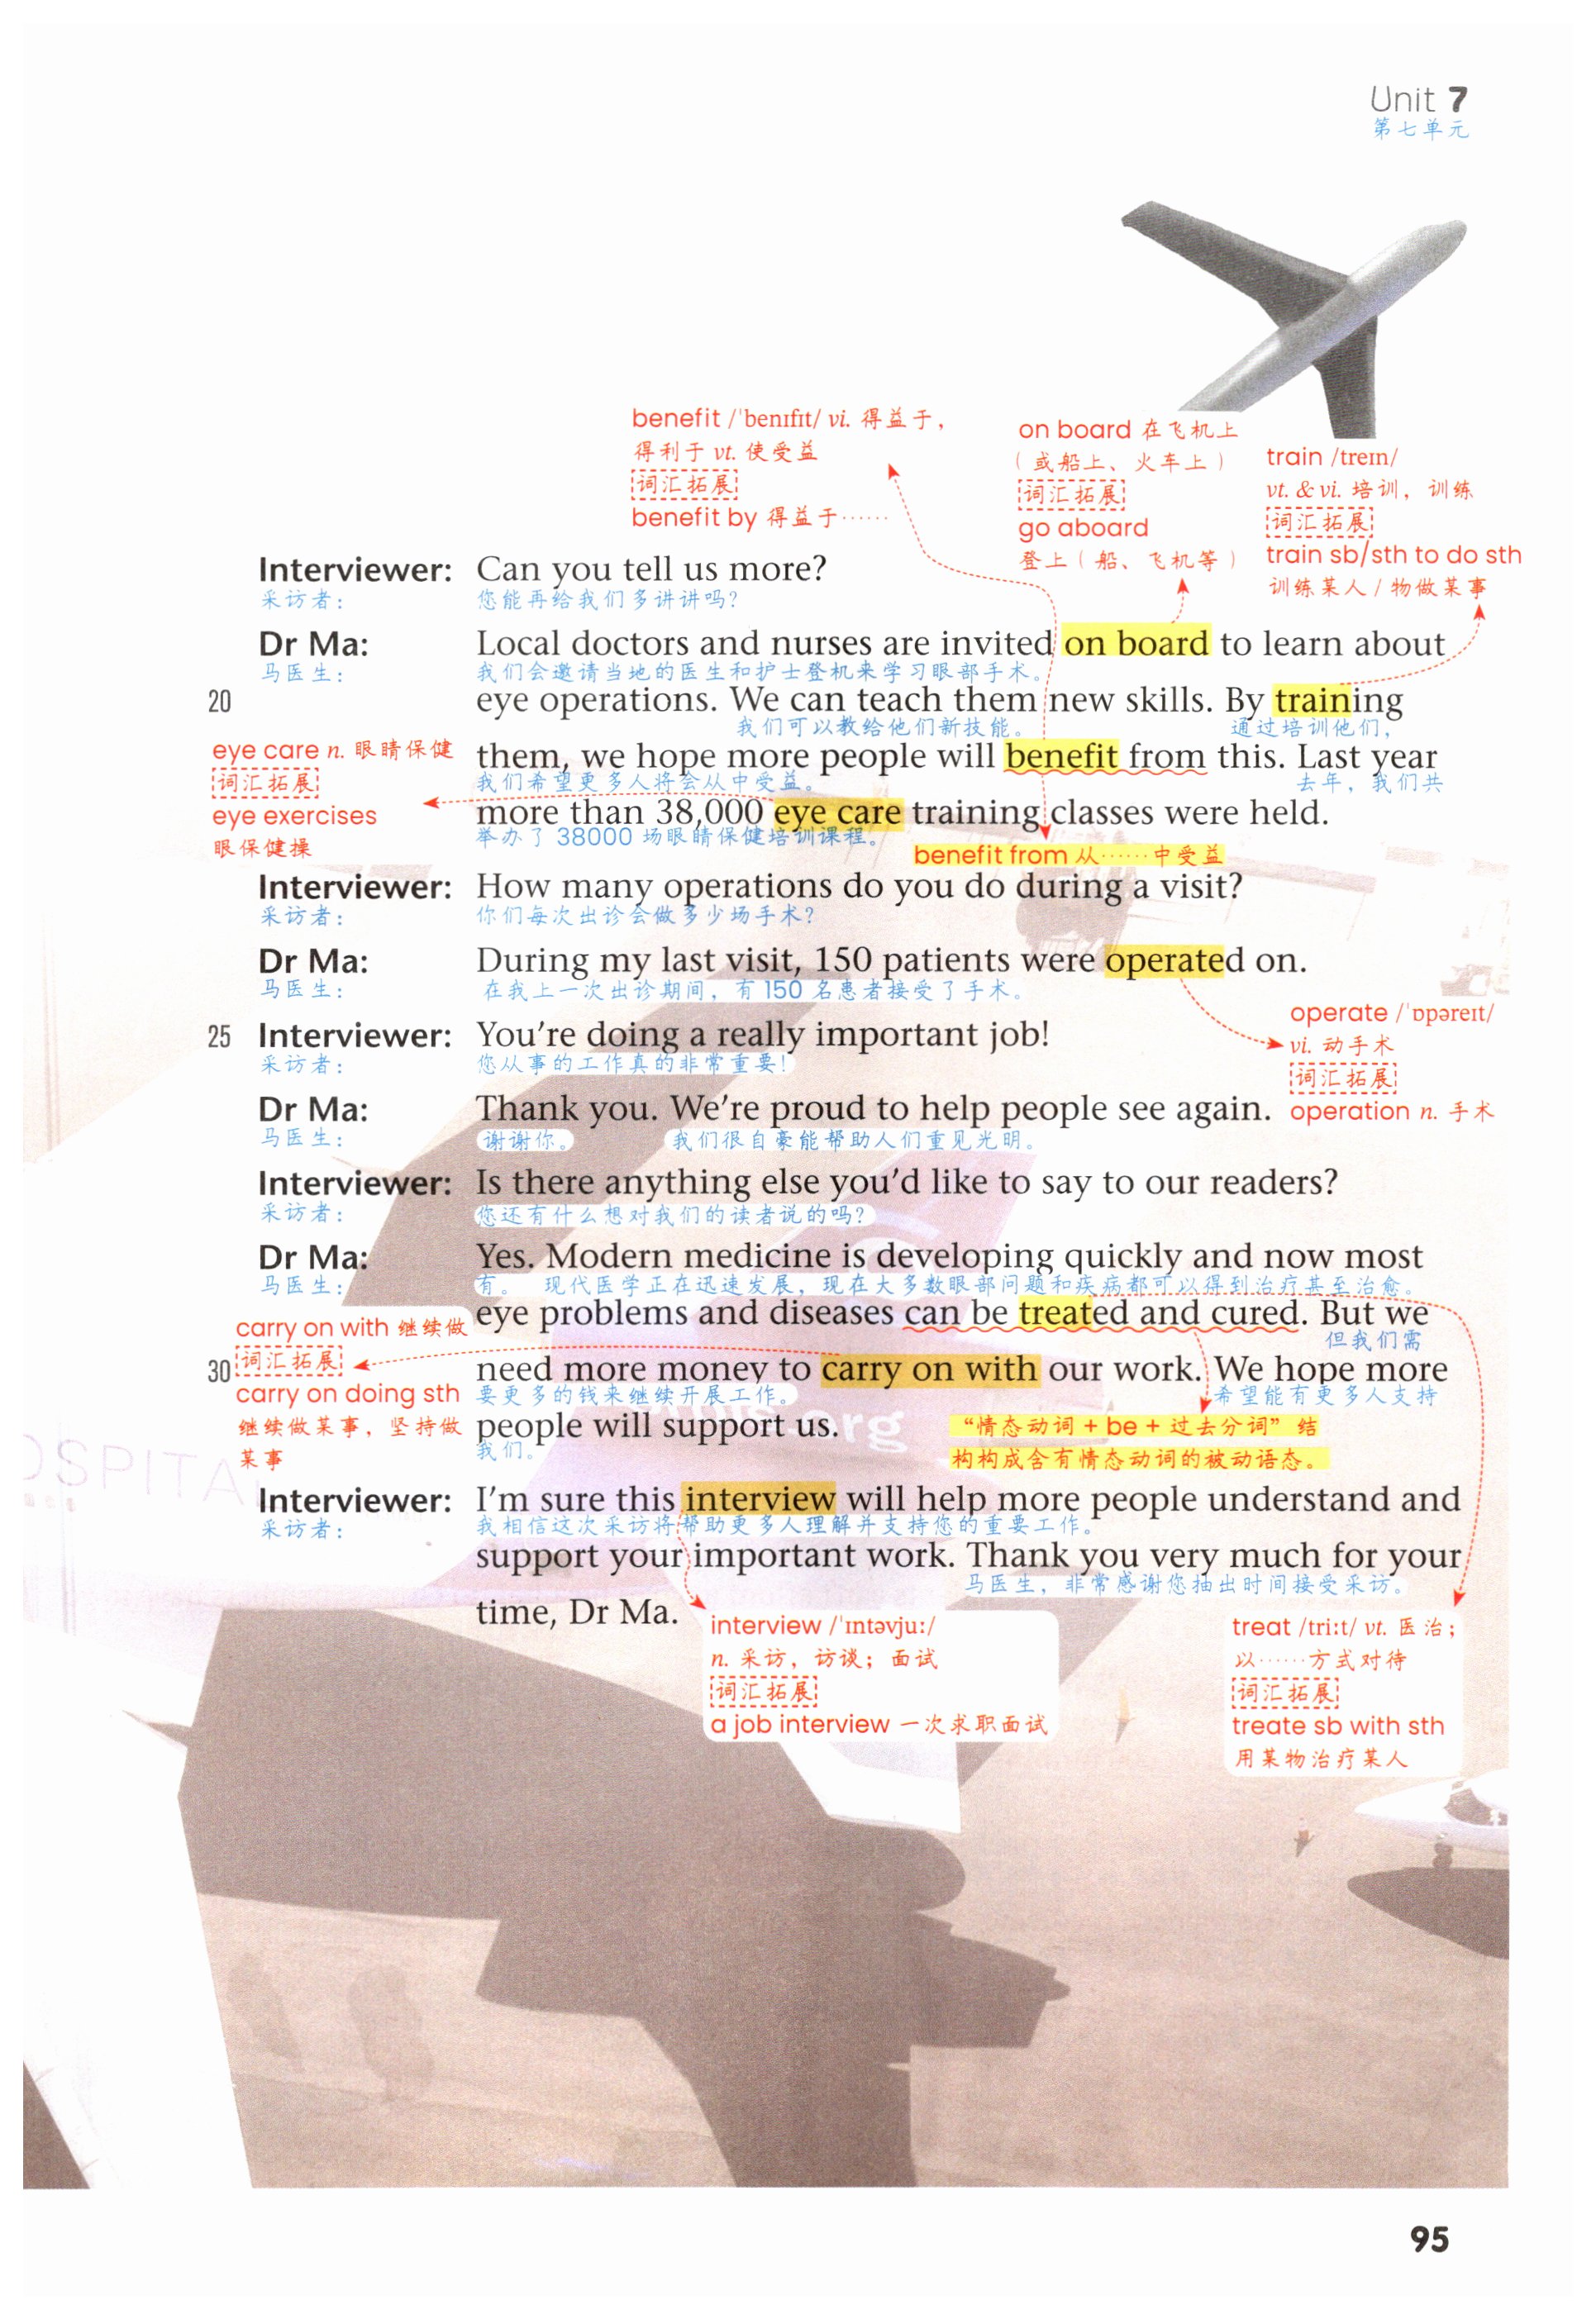 Unit 7
第七单元
benefit /ˈbenɪfɪt/ vi. 得益于，
得利于 vt. 使受益
词汇拓展
benefit by 得益于……
on board 在飞机上
（或船上、火车上）
词汇拓展
go aboard
登上（船、飞机等）
train /treɪn/
vt. & vi. 培训，训练
词汇拓展
train sb/sth to do sth
训练某人/物做某事
Interviewer: Can you tell us more?
采访者： 您能再给我们多讲讲吗？
Dr Ma: Local doctors and nurses are invited on board to learn about
马医生： 我们会邀请当地的医生和护士登机来学习眼部手术。
20 eye operations. We can teach them new skills. By training
我们可以教给他们新技能。 通过培训他们，
eye care n. 眼睛保健
词汇拓展
eye exercises
眼保健操
them, we hope more people will benefit from this. Last year
我们希望更多人将会从中受益。 去年，我们共
more than 38,000 eye care training classes were held.
举办了 38000 场眼睛保健培训课程。
benefit from 从……中受益
Interviewer: How many operations do you do during a visit?
采访者： 你们每次出诊会做多少场手术？
Dr Ma: During my last visit, 150 patients were operated on.
马医生： 在我上一次出诊期间，有 150 名患者接受了手术。
operate /ˈɒpəreɪt/
vi. 动手术
词汇拓展
operation n. 手术
25 Interviewer: You're doing a really important job!
采访者： 您从事的工作真的非常重要！
Dr Ma: Thank you. We're proud to help people see again.
马医生： 谢谢你。 我们很自豪能帮助人们重见光明。
Interviewer: Is there anything else you'd like to say to our readers?
采访者： 您还有什么想对我们的读者说的吗？
Dr Ma: Yes. Modern medicine is developing quickly and now most
马医生： 有。 现代医学正在迅速发展，现在大多数眼部问题和疾病都可以得到治疗甚至治愈。
eye problems and diseases can be treated and cured. But we
但我们需
carry on with 继续做
词汇拓展
carry on doing sth
继续做某事，坚持做
某事
30 need more money to carry on with our work. We hope more
要更多的钱来继续开展工作。 希望能有更多人支持
people will support us.
我们。
“情态动词 + be + 过去分词”结
构构成含有情态动词的被动语态。
.org
OSPITA
Interviewer: I'm sure this interview will help more people understand and
采访者： 我相信这次采访将帮助更多人理解并支持您的重要工作。
support your important work. Thank you very much for your
马医生，非常感谢您抽出时间接受采访。
time, Dr Ma.
interview /ˈɪntəvjuː/
n. 采访，访谈；面试
词汇拓展
a job interview 一次求职面试
treat /triːt/ vt. 医治；
以……方式对待
词汇拓展
treate sb with sth
用某物治疗某人
95